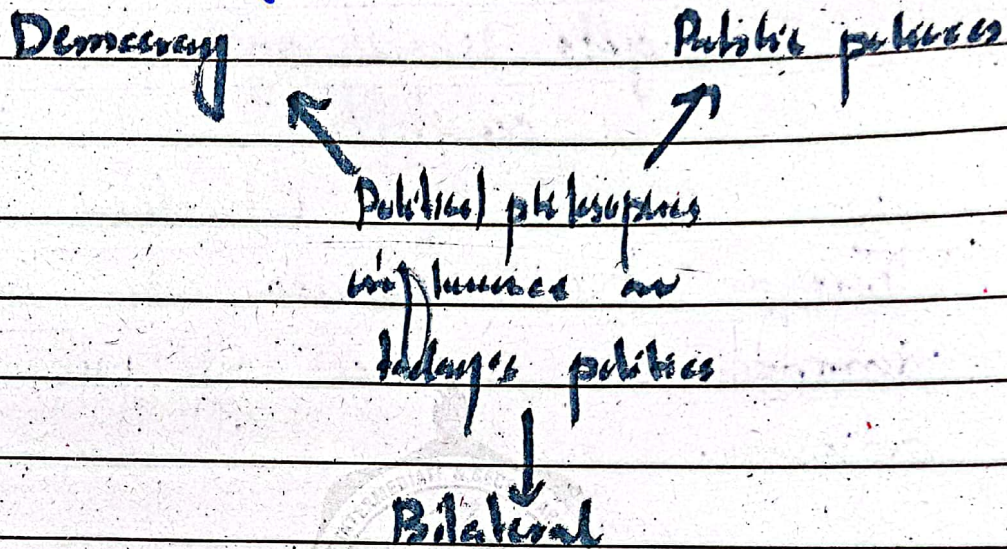 Democracy
Public policies
Political philosophies
influences on
today's politics
Bilateral